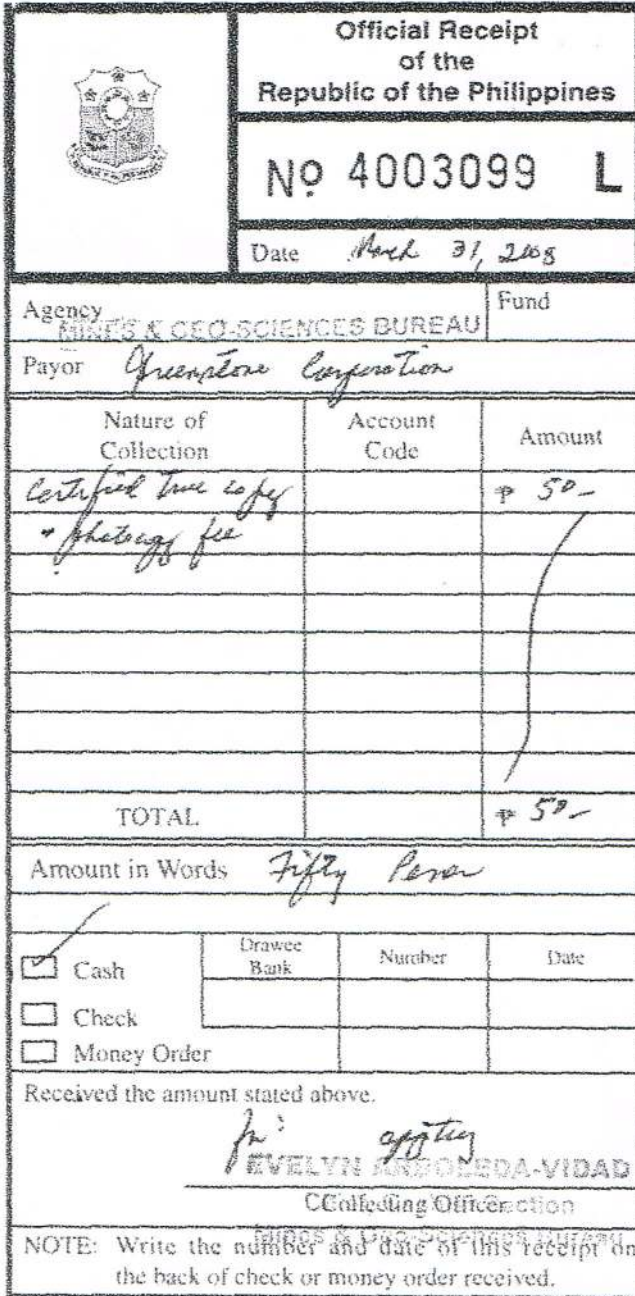 Official Receipt
of the
Republic of the Philippines
Nº 4003099 L
Date March 31, 2008
Agency
MINES & GEO-SCIENCES BUREAU
Fund
Payor Greenstone Corporation
Nature of
Collection
Account
Code
Amount
Certified True copy
₱ 50-
photocopy fee
TOTAL
₱ 50-
Amount in Words Fifty Pesos
Cash
Drawee
Bank
Number
Date
Check
Money Order
Received the amount stated above.
EVELYN -VIDAD
Collecting Officer
Mines & Geo-Sciences Bureau
NOTE: Write the number and date of this receipt on
the back of check or money order received.